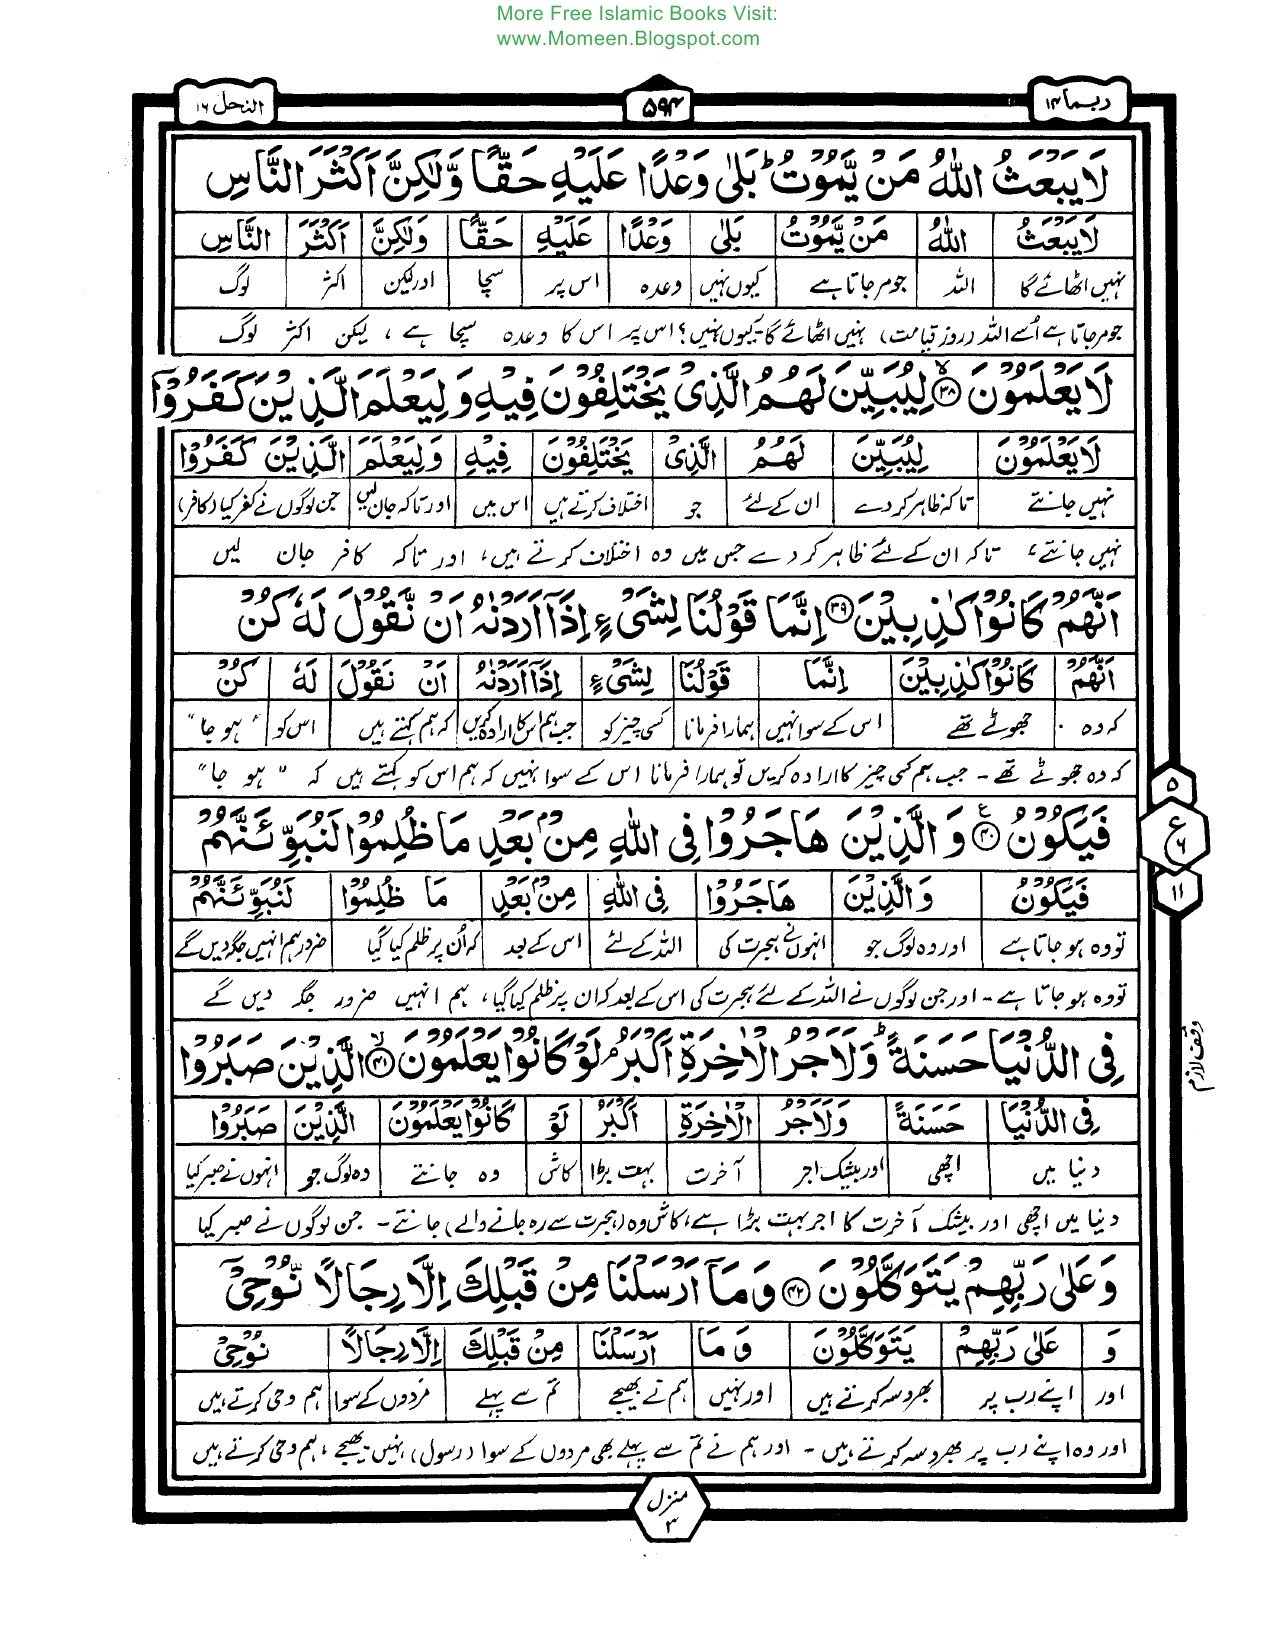 More Free Islamic Books Visit:
www.Momeen.Blogspot.com
ربما ۱۴
۵۹۴
النحل ۱۶
لَا يَبْعَثُ اللّٰهُ مَنْ يَّمُوْتُ ؕ بَلٰى وَعْدًا عَلَيْهِ حَقًّا وَّلٰكِنَّ اَكْثَرَ النَّاسِ
لَا يَبْعَثُ اللّٰهُ مَنْ يَّمُوْتُ بَلٰى وَعْدًا عَلَيْهِ حَقًّا وَلٰكِنَّ اَكْثَرَ النَّاسِ
نہیں اٹھائے گا اللہ جو مر جاتا ہے کیوں نہیں وعدہ اس پر سچا اور لیکن اکثر لوگ
جو مر جاتا ہے اُسے اللہ (روز قیامت) نہیں اٹھائے گا۔ کیوں نہیں؟ اس پر اس کا وعدہ سچا ہے، لیکن اکثر لوگ
لَا يَعْلَمُوْنَ ۙ﴿۳۸﴾ لِيُبَيِّنَ لَهُمُ الَّذِىْ يَخْتَلِفُوْنَ فِيْهِ وَلِيَعْلَمَ الَّذِيْنَ كَفَرُوْٓا
لَا يَعْلَمُوْنَ لِيُبَيِّنَ لَهُمُ الَّذِىْ يَخْتَلِفُوْنَ فِيْهِ وَلِيَعْلَمَ الَّذِيْنَ كَفَرُوْا
نہیں جانتے تاکہ ظاہر کر دے ان کے لئے جو اختلاف کرتے ہیں اس میں اور تاکہ جان لیں جن لوگوں نے کفر کیا (کافر)
نہیں جانتے، تاکہ ان کے لئے ظاہر کر دے جس میں وہ اختلاف کرتے ہیں، اور تاکہ کافر جان لیں
اَنَّهُمْ كَانُوْا كٰذِبِيْنَ ﴿۳۹﴾ اِنَّمَا قَوْلُنَا لِشَىْءٍ اِذَآ اَرَدْنٰهُ اَنْ نَّقُوْلَ لَهٗ كُنْ
اَنَّهُمْ كَانُوْا كٰذِبِيْنَ اِنَّمَا قَوْلُنَا لِشَىْءٍ اِذَآ اَرَدْنٰهُ اَنْ نَقُوْلَ لَهٗ كُنْ
کہ وہ جھوٹے تھے اس کے سوا نہیں ہمارا فرمانا کسی چیز کو جب ہم اس کا ارادہ کریں کہ ہم کہتے ہیں اس کو "ہو جا"
کہ وہ جھوٹے تھے۔ جب ہم کسی چیز کا ارادہ کریں تو ہمارا فرمانا اس کے سوا نہیں کہ ہم اس کو کہتے ہیں کہ "ہو جا"
فَيَكُوْنُ ﴿۴۰﴾ ع وَالَّذِيْنَ هَاجَرُوْا فِى اللّٰهِ مِنْۢ بَعْدِ مَا ظُلِمُوْا لَنُبَوِّئَنَّهُمْ
فَيَكُوْنُ وَالَّذِيْنَ هَاجَرُوْا فِى اللّٰهِ مِنْۢ بَعْدِ مَا ظُلِمُوْا لَنُبَوِّئَنَّهُمْ
تو وہ ہو جاتا ہے اور وہ لوگ جو انہوں نے ہجرت کی اللہ کے لئے اس کے بعد کہ اُن پر ظلم کیا گیا ضرور ہم انہیں جگہ دیں گے
تو وہ ہو جاتا ہے۔ اور جن لوگوں نے اللہ کے لئے ہجرت کی اس کے بعد کہ ان پر ظلم کیا گیا، ہم انہیں ضرور جگہ دیں گے
۵
ع ۶
۱۱
فِى الدُّنْيَا حَسَنَةً ؕ وَلَاَجْرُ الْاٰخِرَةِ اَكْبَرُ ۘ لَوْ كَانُوْا يَعْلَمُوْنَ ۙ﴿۴۱﴾ الَّذِيْنَ صَبَرُوْا
وقف لازم
فِى الدُّنْيَا حَسَنَةً وَلَاَجْرُ الْاٰخِرَةِ اَكْبَرُ لَوْ كَانُوْا يَعْلَمُوْنَ الَّذِيْنَ صَبَرُوْا
دنیا میں اچھی اور بیشک اجر آخرت بہت بڑا کاش وہ جانتے وہ لوگ جو انہوں نے صبر کیا
دنیا میں اچھی اور بیشک آخرت کا اجر بہت بڑا ہے، کاش وہ (ہجرت سے رہ جانے والے) جانتے۔ جن لوگوں نے صبر کیا
وَعَلٰى رَبِّهِمْ يَتَوَكَّلُوْنَ ﴿۴۲﴾ وَمَآ اَرْسَلْنَا مِنْ قَبْلِكَ اِلَّا رِجَالًا نُّوْحِىْٓ
وَ عَلٰى رَبِّهِمْ يَتَوَكَّلُوْنَ وَمَا اَرْسَلْنَا مِنْ قَبْلِكَ اِلَّا رِجَالًا نُوْحِىْ
اور اپنے رب پر بھروسہ کرتے ہیں اور نہیں ہم نے بھیجے تم سے پہلے مردوں کے سوا ہم وحی کرتے ہیں
اور وہ اپنے رب پر بھروسہ کرتے ہیں۔ اور ہم نے تم سے پہلے بھی مردوں کے سوا (رسول) نہیں بھیجے، ہم وحی کرتے ہیں
منزل ۳